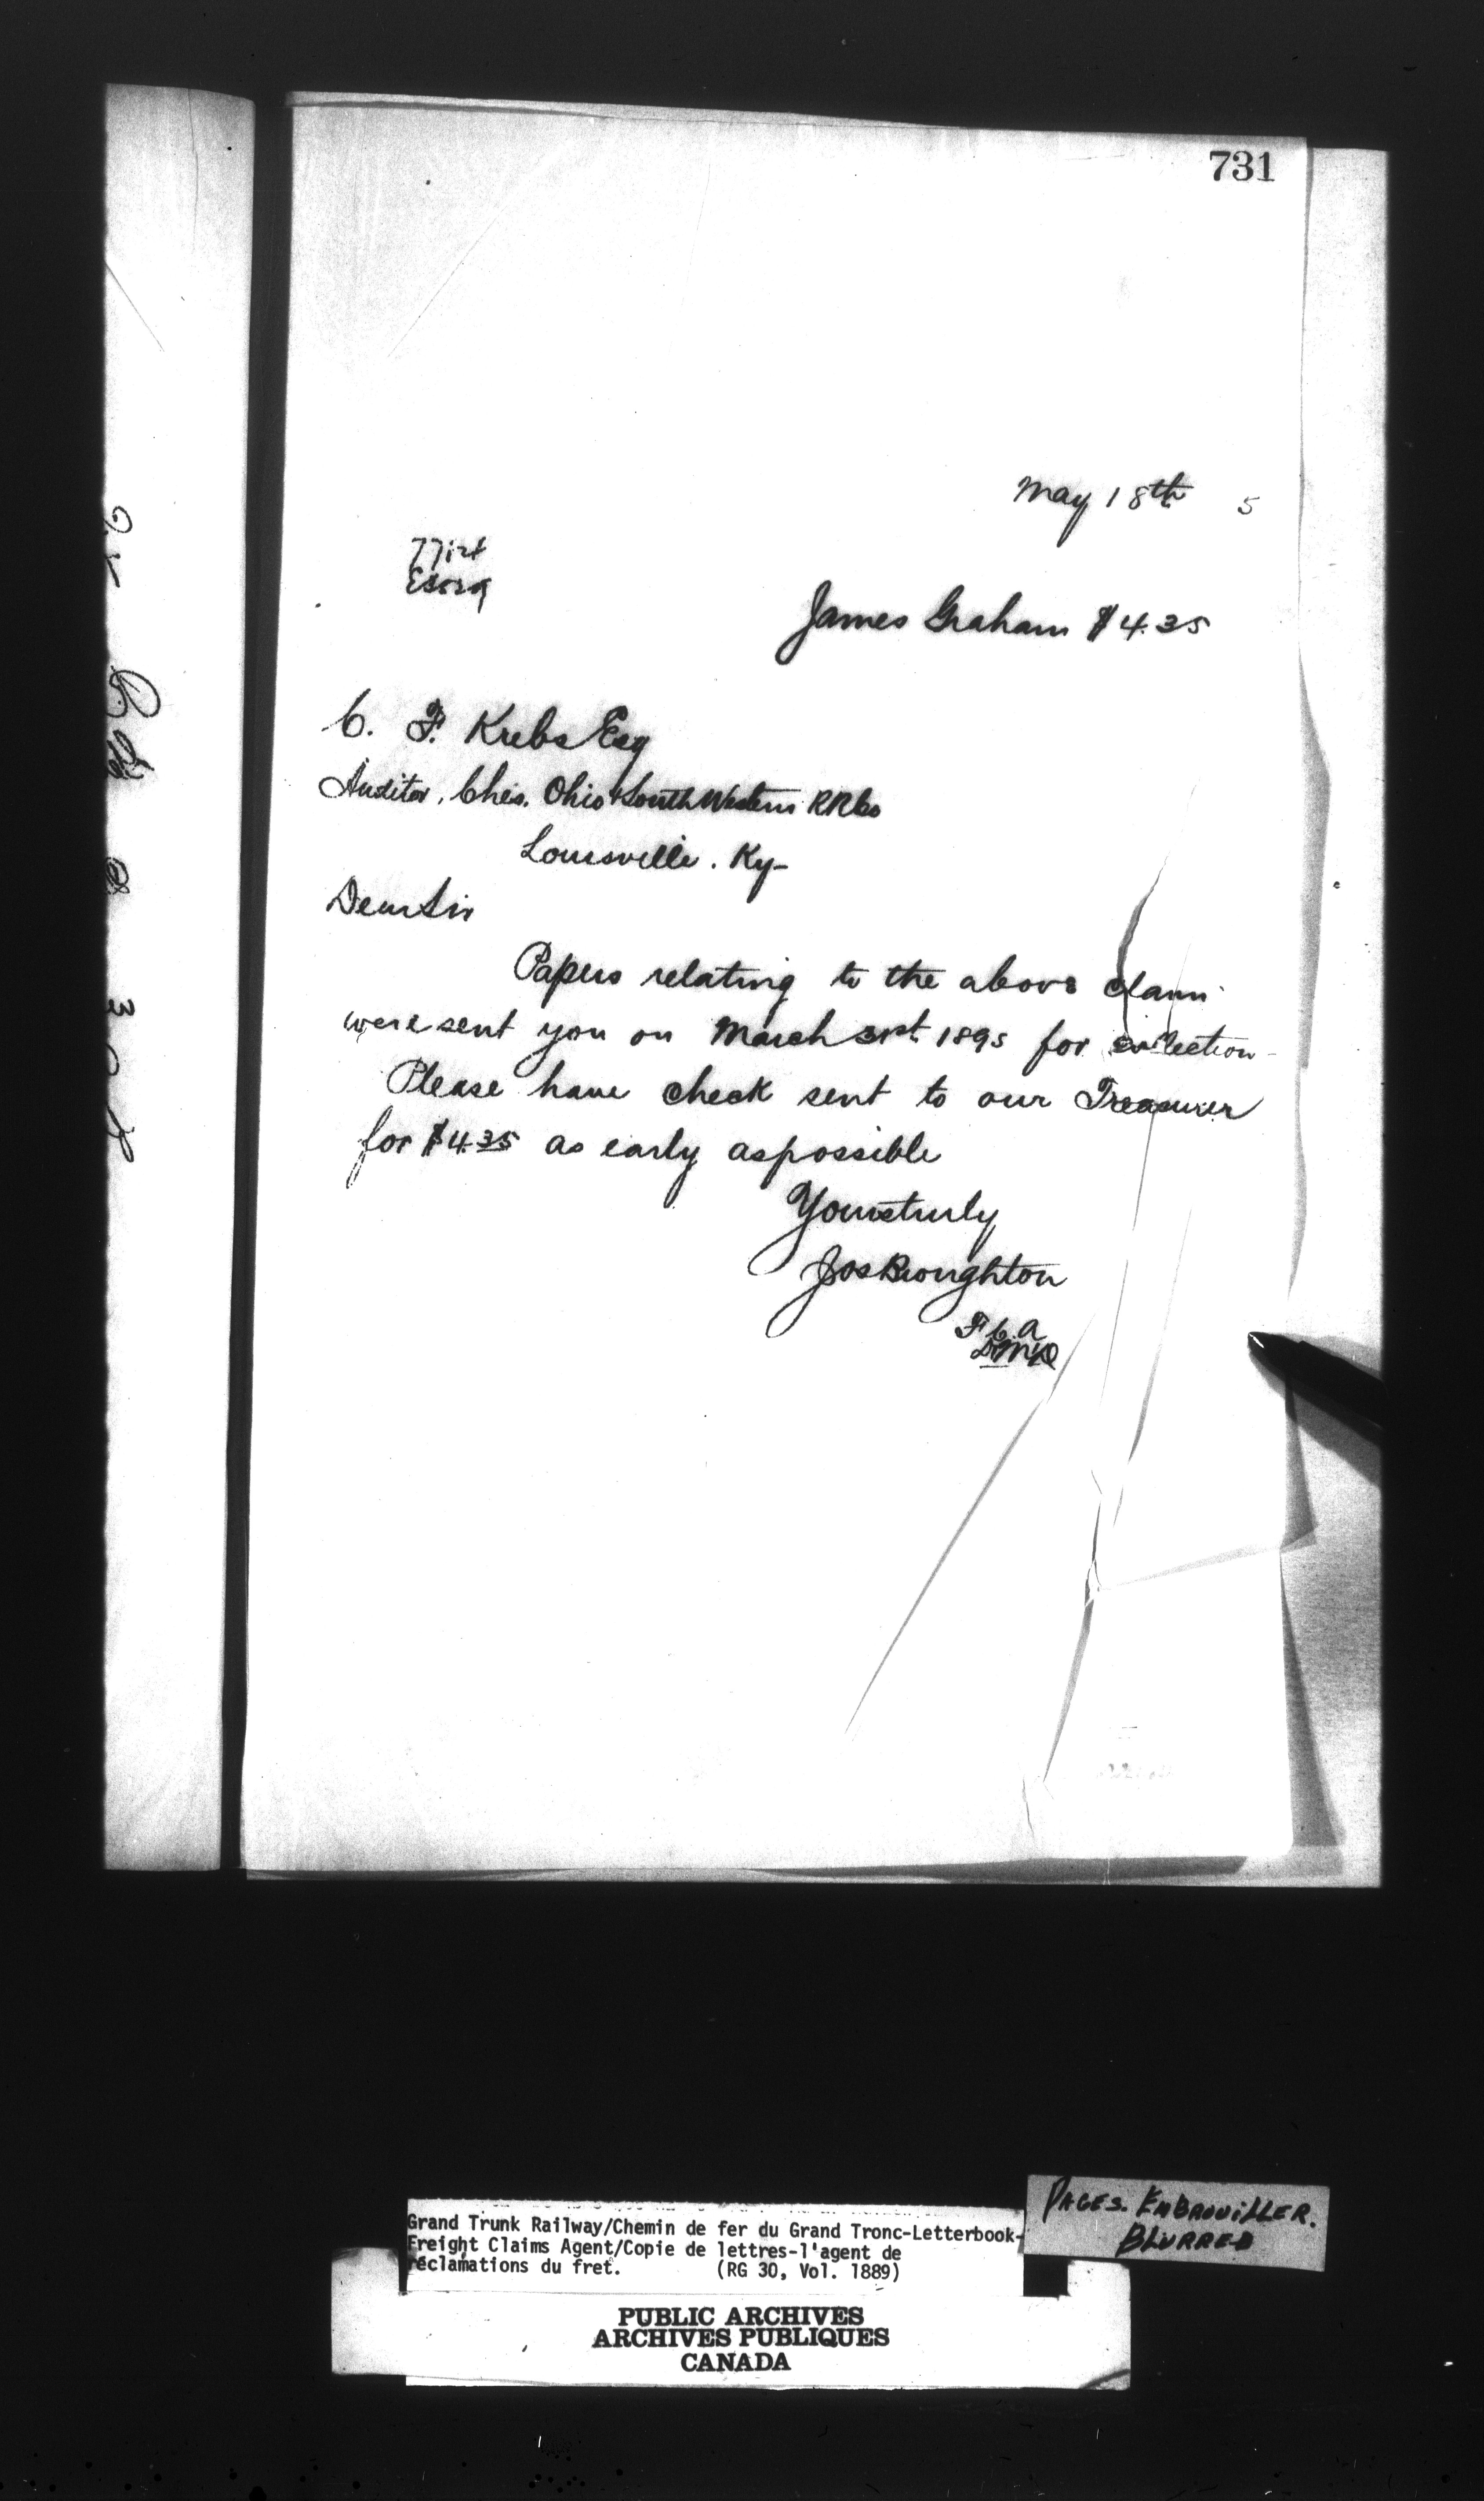 731
May 18th 5
James Graham $4.35
C. F. Krebs Esq
Auditor, Ches. Ohio & South Western RR Co
Louisville. Ky-
Dear Sir
Papers relating to the above claim
were sent you on March 31st 1895 for collection
Please have check sent to our Treasurer
for $4.35 as early as possible
Yours truly
Jos Broughton
F.C.A
Grand Trunk Railway/Chemin de fer du Grand Tronc-Letterbook-
Freight Claims Agent/Copie de lettres-l'agent de
réclamations du fret. (RG 30, Vol. 1889)
PAGES. EMBROUILLER.
BLURRED
PUBLIC ARCHIVES
ARCHIVES PUBLIQUES
CANADA